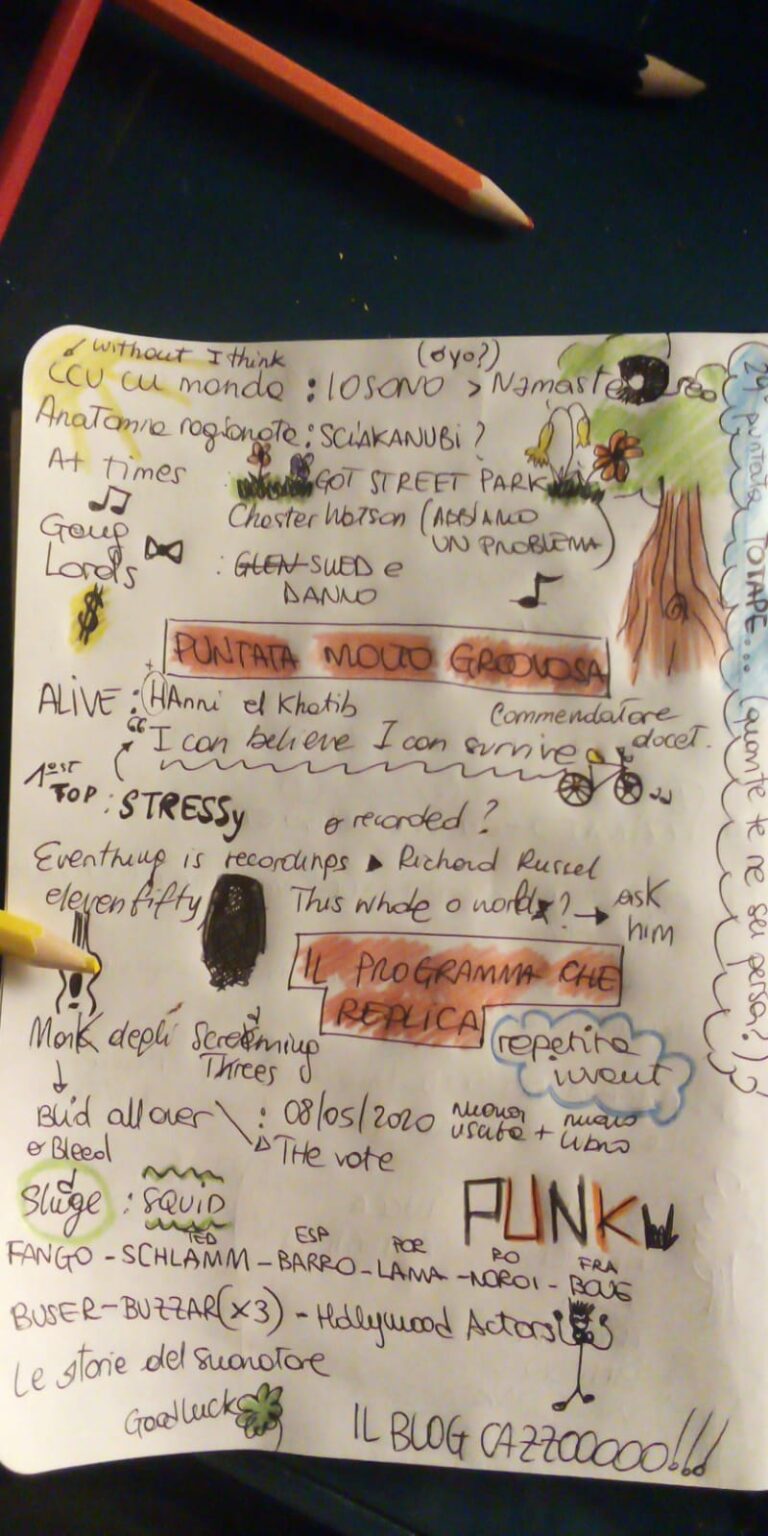 without I think
(o yo?)
CCU CU monda : IOSONO > Namaste
Anatomia ragionata : SCIAKANUBI ?
At times : GOT STREET PARK
Chester Watson (ABBIAMO
UN PROBLEMA)
Gang
Lords : GLEN SUED e
DANNO
$
PUNTATA MOLTO GROOVOSA
ALIVE : HAnni el Khatib
"I can believe I can survive
Commendatore
docet.
1ost
TOP : STRESSy
o recorded ?
Everything is recordings ▶ Richard Russel
eleven fifty
This whole o world ? → ask
him
!
IL PROGRAMMA CHE
REPLICA
repetita
iuvant
Monk degli Screaming
Threes
Blid all over : 08/05/2020 nuova
usata + nuovo
libro
o Bleed
THE vote
Sludge : SQUID
PUNK
TED ESP POR RO FRA
FANGO - SCHLAMM - BARRO - LAMA - NOROI - BOUE
BUSER - BUZZAR (x3) - Hollywood Actors
Le storie del suonatore
Good luck
IL BLOG CAZZOOOOO!!!
29° puntata TOTAPE... (quante te ne sei persa?)